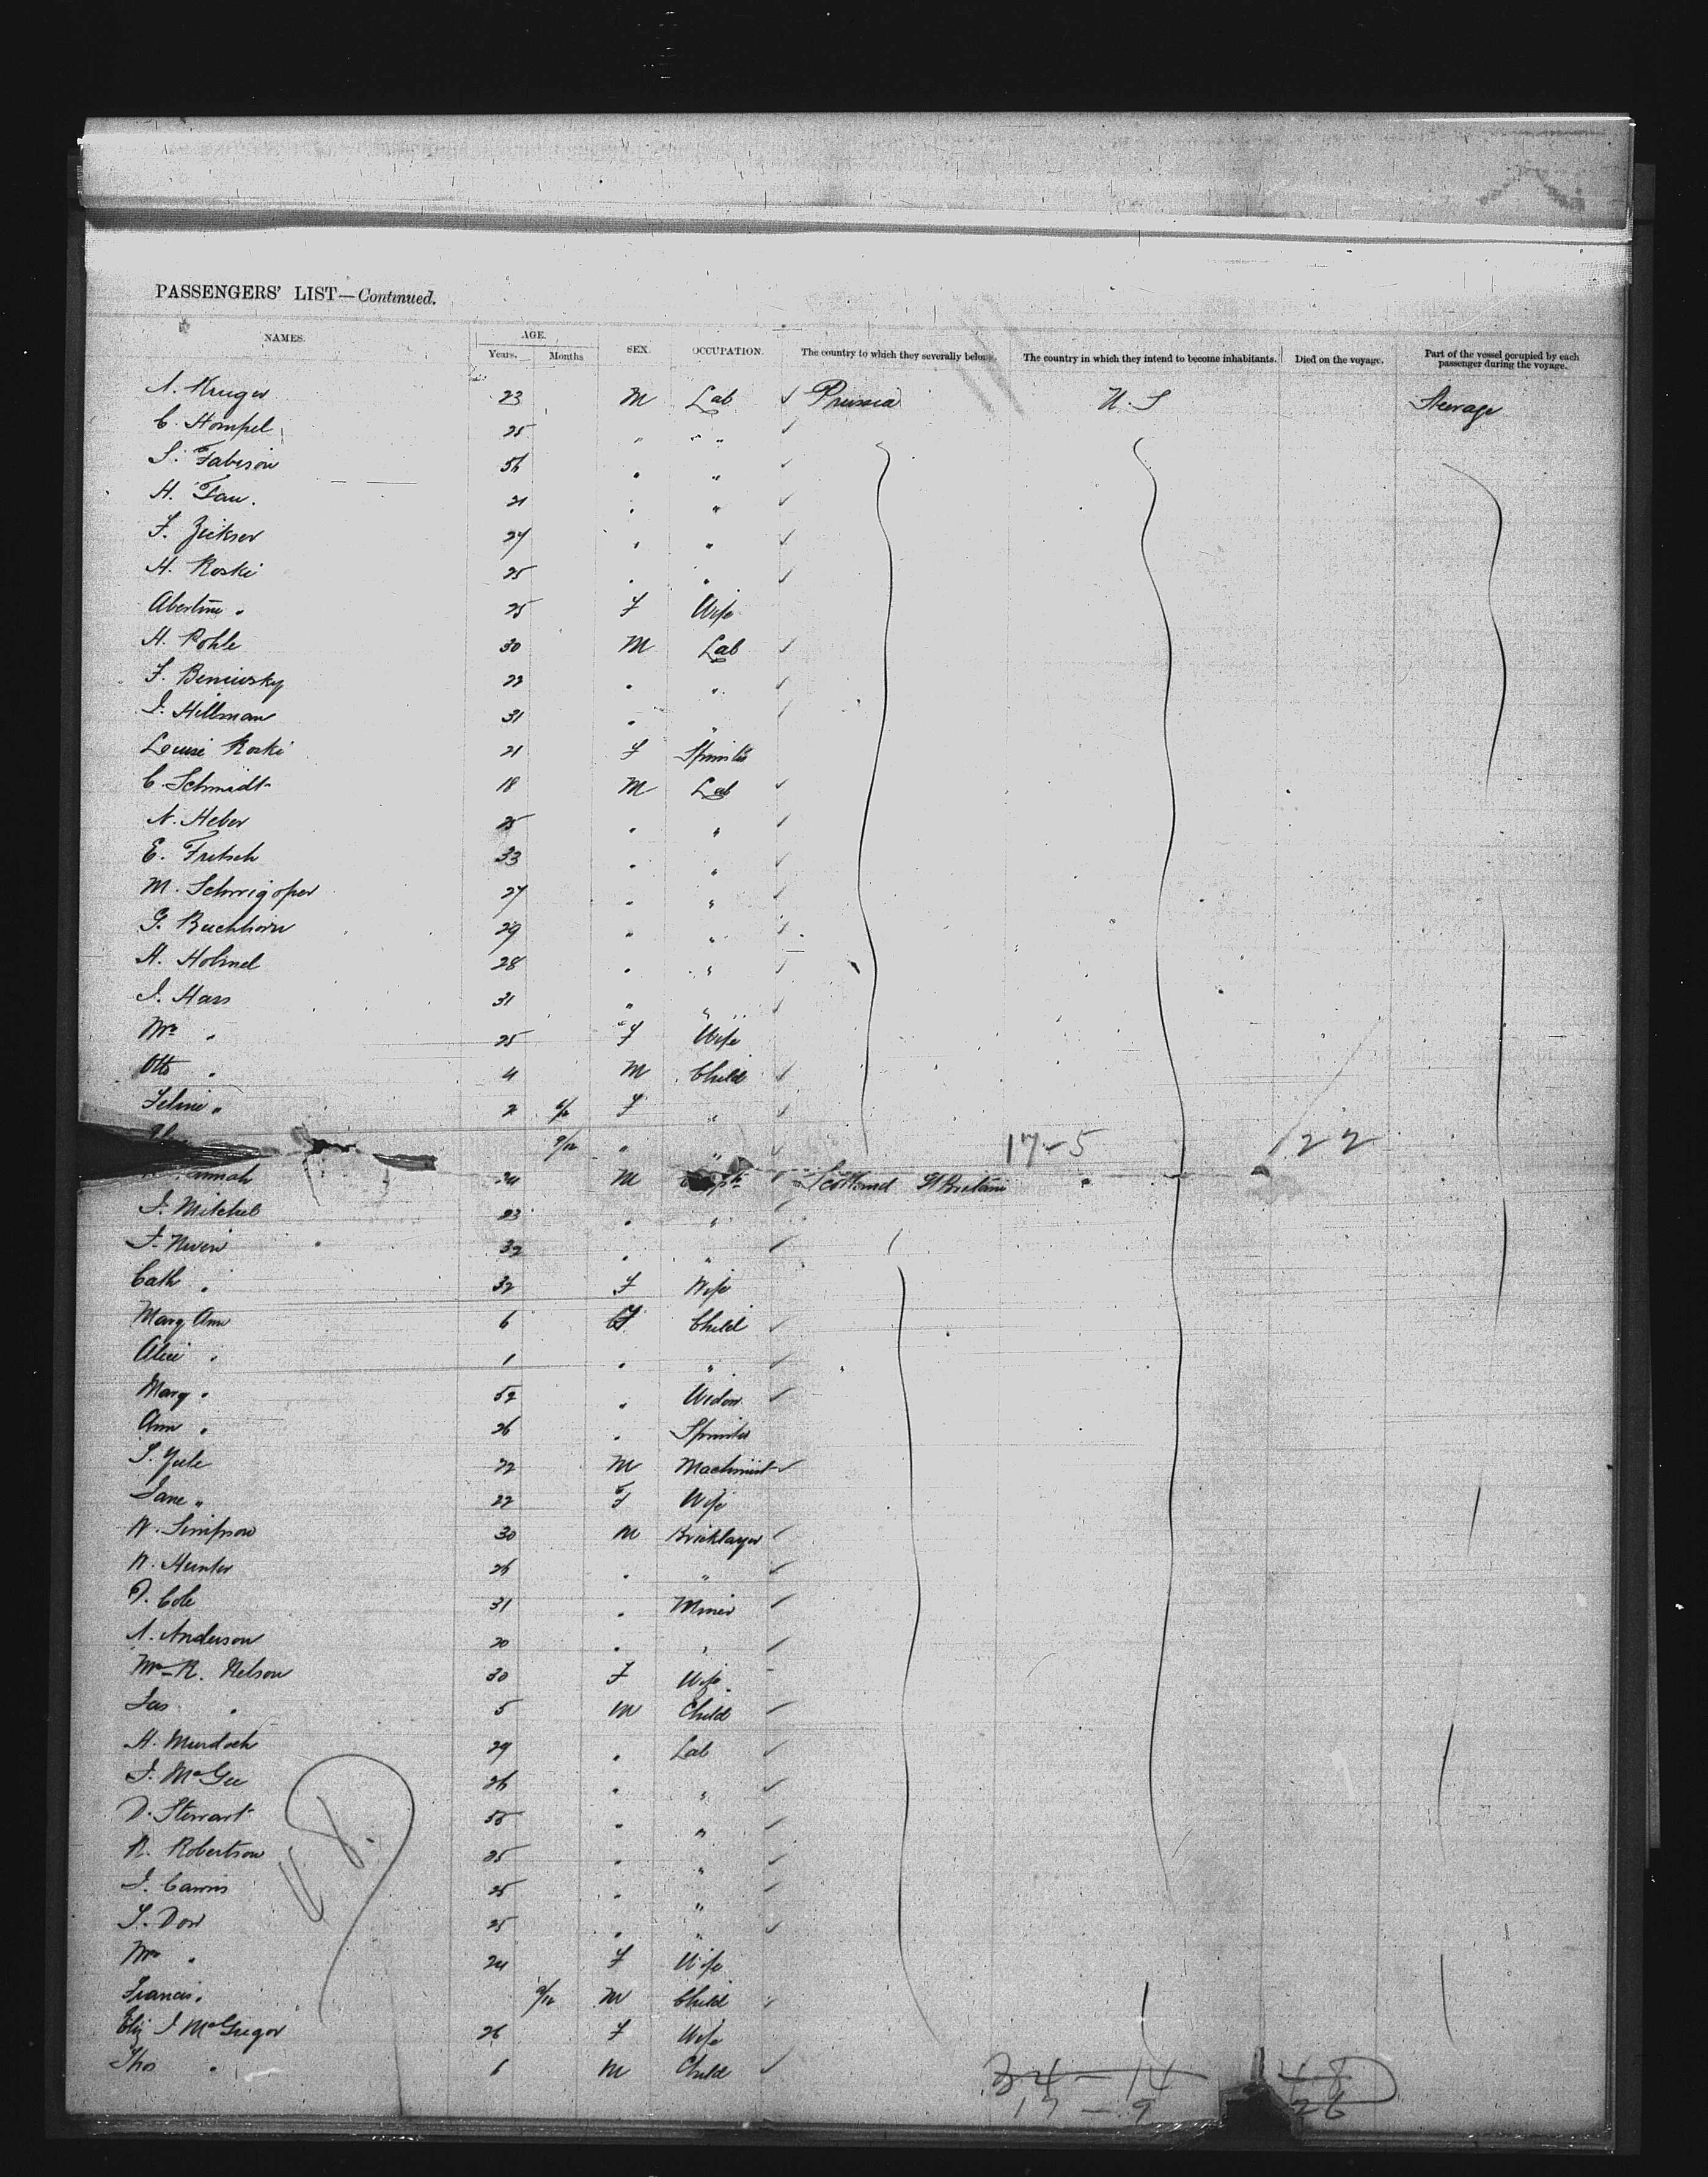 PASSENGERS' LIST—Continued.
NAMES. AGE. Years. Months SEX. OCCUPATION. The country to which they severally belong. The country in which they intend to become inhabitants. Died on the voyage. Part of the vessel occupied by each passenger during the voyage.
A. Kruger 23 M Lab ✓ Prussia U.S Steerage
C. Hompel 25 " " " ✓
S. Fabision 56 " " ✓
H. Fau. 21 " " ✓
F. Zickser 24 " " ✓
H. Koski 25 " " ✓
Abertine " 25 F Wife
H. Pohle 30 M Lab ✓
F. Beniewsky 22 " " ✓
I. Hillman 31 " " ✓
Louise Koski 21 F Spinster
C. Schmidt 18 M Lab ✓
N. Heber 25 " " ✓
E. Fritsch 33 " " ✓
M. Schwigoper 27 " " ✓
G. Buchhorn 29 " " ✓
H. Holmel 28 " " ✓
J. Hass 31 " " ✓
Mrs " 25 F Wife
Otto " 4 M Child ✓
Feline " 2 6/12 F " ✓
9/12 " " ✓ 17-5 22
24 M ✓ Scotland Gt Britain
J. Mitchel 23 " " ✓
J. Niven 32 " " ✓
Cath " 32 F Wife
Mary Ann 6 F Child ✓
Alice " 1 " " ✓
Mary " 52 " Widow ✓
Ann " 26 " Spinster
S. Yule 22 M Machinist ✓
Jane " 22 F Wife
W. Simpson 30 M Bricklayer ✓
W. Hunter 26 " " ✓
D. Cole 31 " Miner ✓
A. Anderson 20 " " ✓
Mrs R. Nelson 30 F Wife -
Jas " 5 M Child ✓
H. Murdoch 29 " Lab ✓
J. McGee 26 " " ✓
D. Stewart 55 " " ✓
R. Robertson 25 " " ✓
J. Cairns 25 " " ✓
S. Dow 25 " " ✓
Mrs " 24 F Wife
Francis " 9/12 M Child ✓
Eliz J McGregor 26 F Wife
Thos " 6 M Child ✓
34-14 48
17-9 26